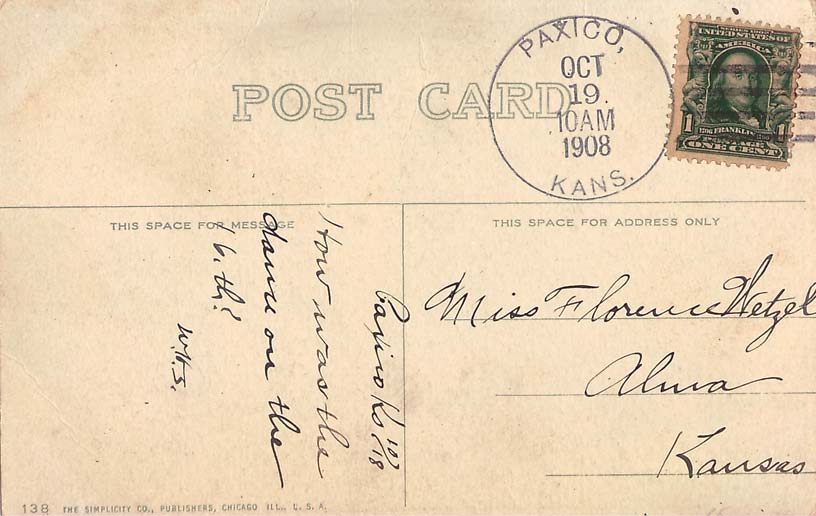 POST CARD
PAXICO,
OCT
19.
10AM
1908
KANS.
SERIES 1902
UNITED STATES OF
AMERICA
1 1
1706 FRANKLIN 1790
POSTAGE
ONE CENT
THIS SPACE FOR MESSAGE
THIS SPACE FOR ADDRESS ONLY
Paxico Ks 10/18
How was the
dance on the
16.th?
W.H.S.
Miss Florence Wetzel
Alma
Kansas
138 THE SIMPLICITY CO., PUBLISHERS, CHICAGO ILL., U. S. A.